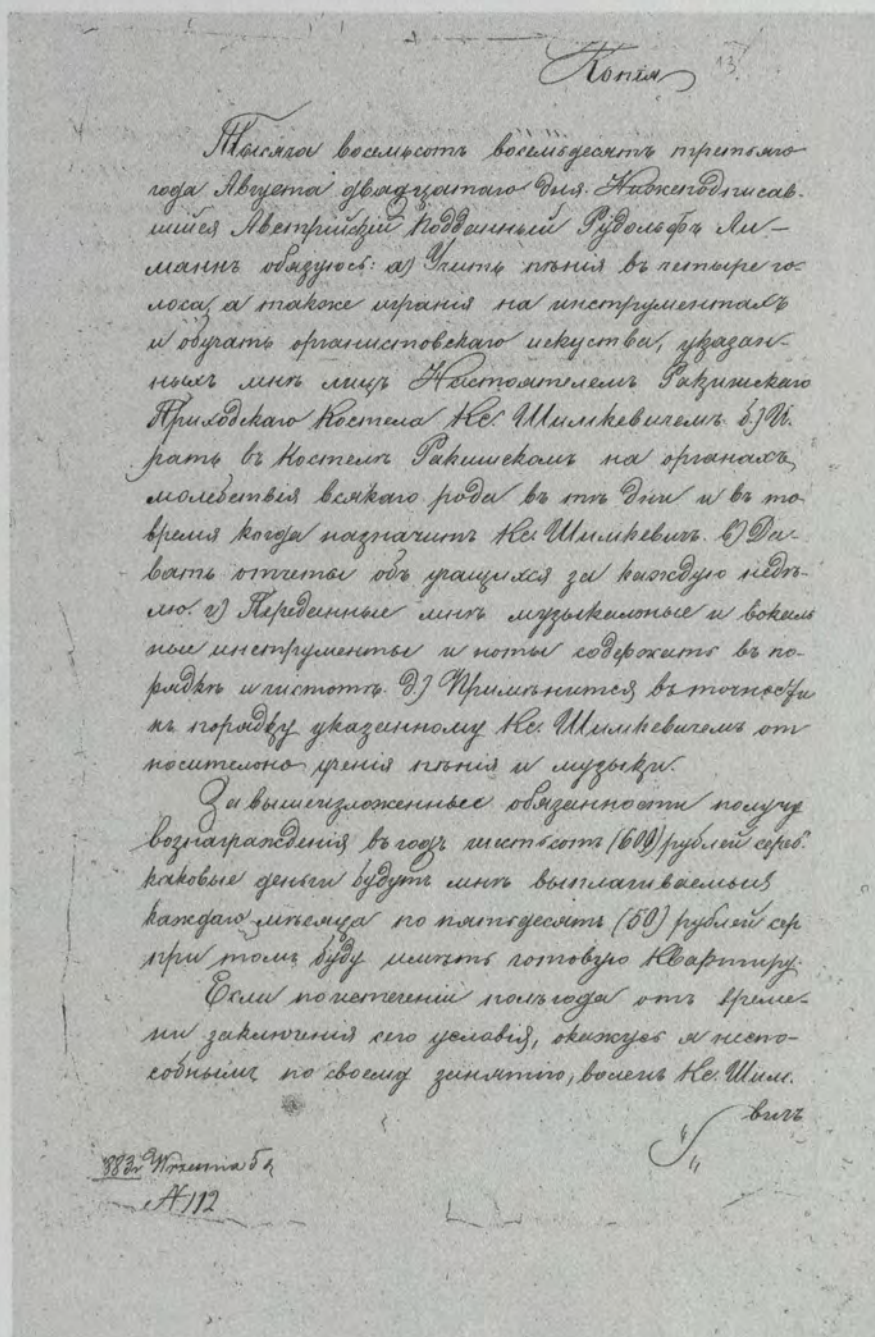 Копія
13
Тысяча восемьсотъ восемьдесятъ третьяго
года Августа двадцатаго дня. Нижеподписав-
шійся Австрійскій Подданный Рудольфъ Ли-
манъ обязуюсь: а) Учить пѣнія въ четыре го-
лоса, а также игранія на инструментахъ
и обучать органистовскаго искуства, указан-
ныхъ мнѣ лицъ Настоятелемъ Ракишскаго
Приходскаго Костела Кс. Шимкевичемъ. б.) Иг-
рать въ Костелѣ Ракишскомъ на органахъ,
молебствія всякаго рода въ тѣ дни и въ то
время когда назначитъ Кс. Шимкевичъ. в) Да-
вать отчеты объ учащихся за каждую недѣ-
лю. г) Переданные мнѣ музыкальные и вокаль
ные инструменты и ноты содержать въ по-
рядкѣ и чистотѣ. д.) Примѣнится въ точности
къ порядку указанному Кс. Шимкевичемъ от
носительно ученія пѣнія и музыки.
За вышеизложенные обязанности получу
вознагражденія въ годъ шестьсотъ (600) рублей сереб.
каковые деньги будутъ мнѣ выплачиваемыя
каждаго мѣсяца по пятьдесятъ (50) рублей сер
при томъ буду имѣть готовую квартиру.
Если по истеченіи полъ года отъ време-
ни заключенія сего условія, окажусь я неспо-
собнымъ по своему занятію, воленъ Кс. Шим.
вичъ
883 r Września 5 d
N 112